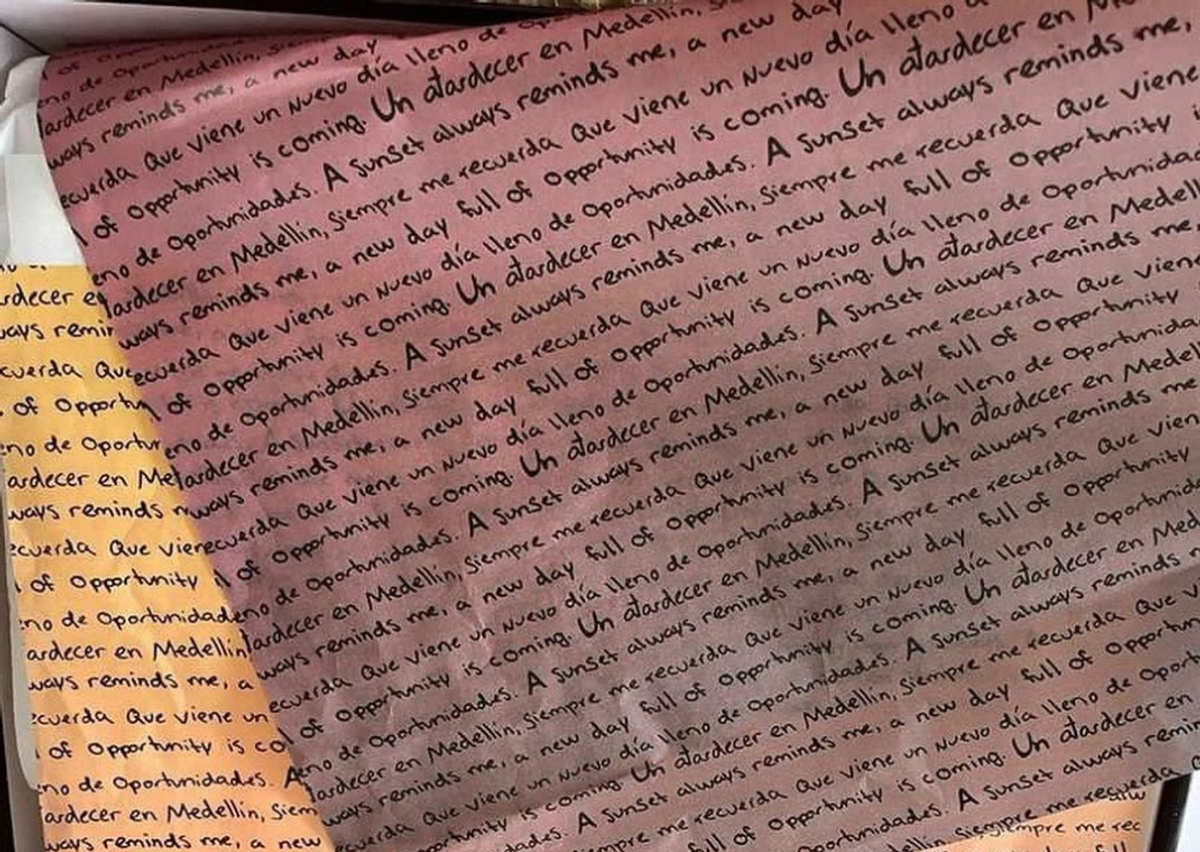 eno de Oportunidades.
ardecer en Medellín, Siem
ways reminds me, a new day
ecuerda Que viene un Nuevo día lleno de Opo
l of Opportunity is coming. Un atardecer en Medellín, S
eno de Oportunidades. A Sunset always reminds me, a new day
ardecer en Medellín, Siempre me recuerda Que viene un Nuevo día lleno d
ways reminds me, a new day full of Opportunity is coming. Un atardecer en M
ecuerda Que viene un Nuevo día lleno de Oportunidades. A Sunset always reminds me,
l of Opportunity is coming. Un atardecer en Medellín, Siempre me recuerda Que viene
eno de Oportunidades. A Sunset always reminds me, a new day full of Opportunity
ardecer en Medellín, Siempre me recuerda Que viene un Nuevo día lleno de Oportunidad
ways reminds me, a new day full of Opportunity is coming. Un atardecer en Medell
ecuerda Que viene un Nuevo día lleno de Oportunidades. A Sunset always reminds me
l of Opportunity is coming. Un atardecer en Medellín, Siempre me recuerda Que vien
eno de Oportunidades. A Sunset always reminds me, a new day full of Opportunity
ardecer en Medellín, Siempre me recuerda Que viene un Nuevo día lleno de Oportunida
ways reminds me, a new day full of Opportunity is coming. Un atardecer en Medell
ecuerda Que viene un Nuevo día lleno de Oportunidades. A Sunset always reminds me
l of Opportunity is coming. Un atardecer en Medellín, Siempre me recuerda Que vien
eno de Oportunidades. A Sunset always reminds me, a new day full of Opportunity
ardecer en Medellín, Siempre me recuerda Que viene un Nuevo día lleno de Oportunid
ways reminds me, a new day full of Opportunity is coming. Un atardecer en Med
ecuerda Que viene un Nuevo día lleno de Oportunidades. A Sunset always reminds
pportunity is coming. Un atardecer en Medellín, Siempre me recuerda Que v
dades. A Sunset always reminds me, a new day full of Opportun
empre me recuerda Que viene un Nuevo día lleno de Oport
ull of Opportunity is coming. Un atardecer en
portunidades. A Sunset always remin
dellín, Siempre me recuerda
ardecer e
ways remin
cuerda Que
of Opportun
eno de Oportun
ardecer en Me
ways reminds m
ecuerda Que vien
l of Opportunity i
eno de Oportunidad
ardecer en Medellín
ways reminds me, a
ecuerda Que viene un
l of Opportunity is co
eno de Oportunidades. A
ardecer en Medellín, Siem
ways reminds me, a new
empre me rec